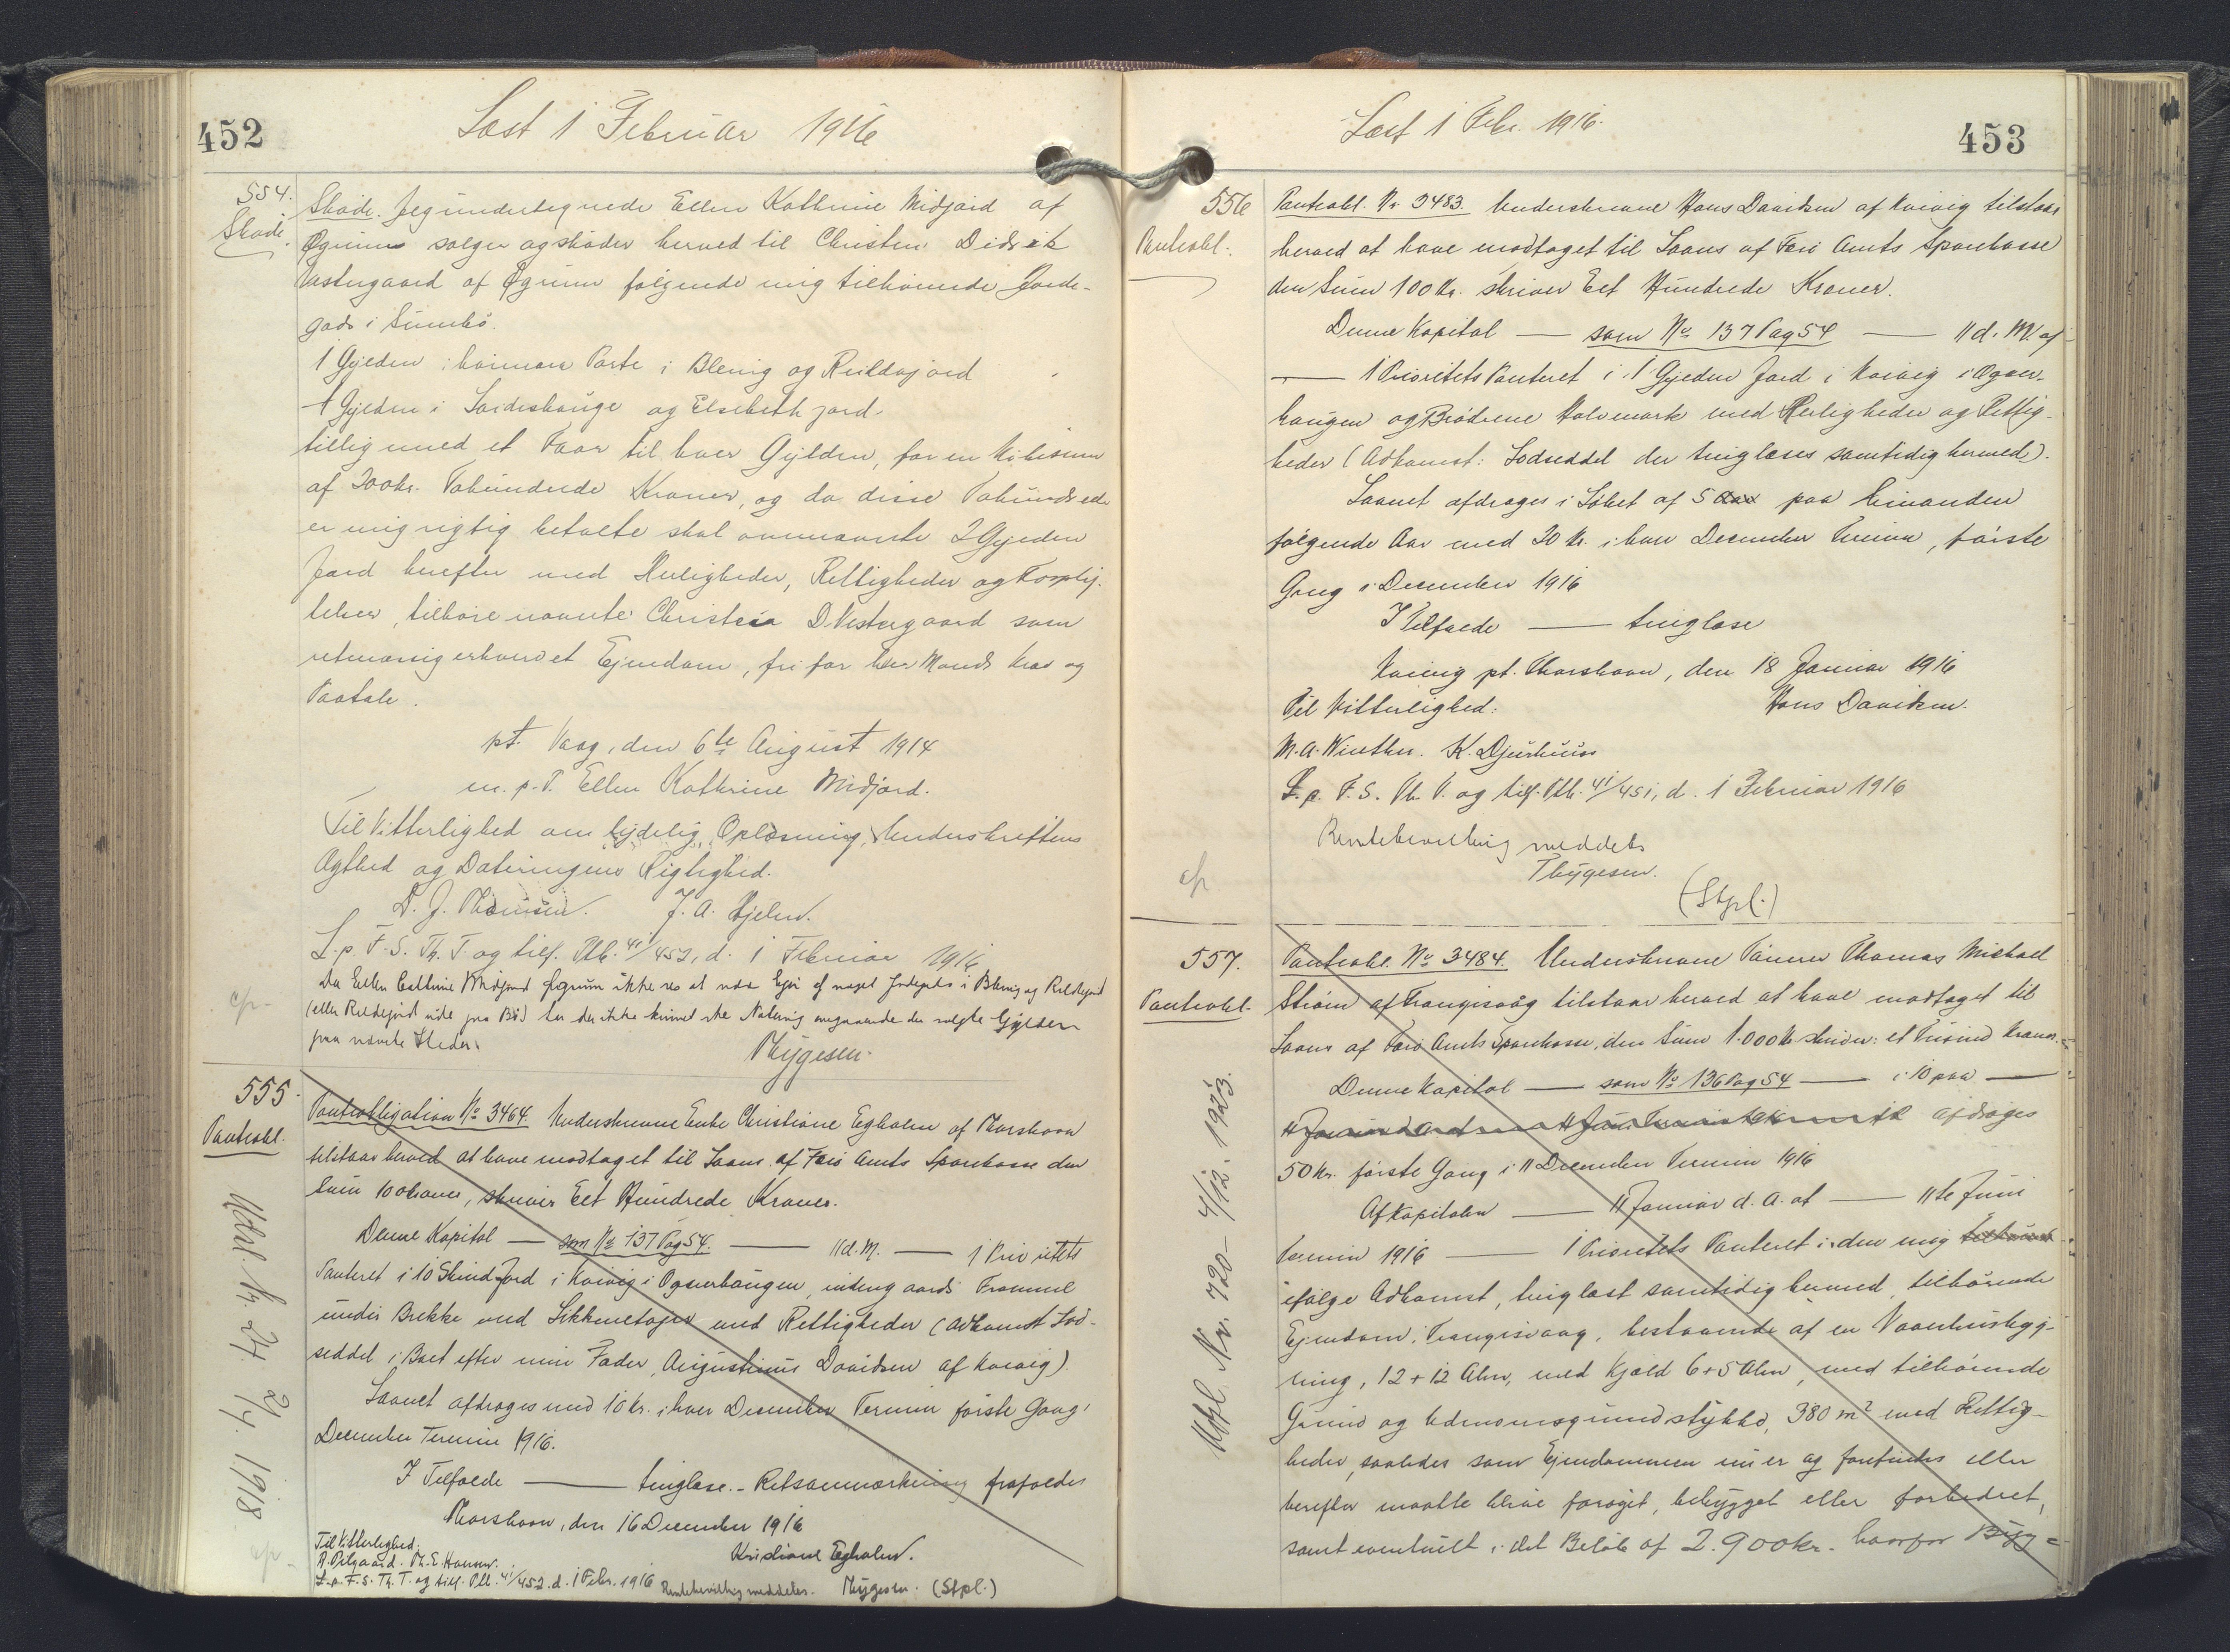 452
Læst 1 Februar 1916
554.
Skøde.
Skøde. Jeg undertegnede Ellen Kathrine Midjord af
Øgrum sælger og skøder herved til Christen Didrik
Vestergaard af Øgrum følgende mig tilhørende Jorde-
gods i Sumbø.
1 Gylden i Parte i og
1 Gylden i og Elsebeth jord
tillig med et Faar til hver Gylden, for en Købesum
af 200 kr. Tohundrede Kroner, og da disse Tohundrede
er mig rigtig betalte skal ovennævnte 2 Gylden
Jord herefter med Herligheder, Rettigheder og Forplig-
telser, tilhøre nævnte Christen D. Vestergaard som
retmæssig erhvervet Ejendom, fri for hver Mands Krav og
Paatale.
pt. Vaag, den 6te August 1914
m. p. P. Ellen Kathrine Midjord.
Til Vitterlighed om tydelig Oplæsning, Underskriftens
Ægthed og Dateringens Rigtighed.
D. J. Thomsen. J. A. Hjelm.
L. p. F. S. Th. T. og tilf. Ptb. 41/452, d. 1 Februar 1916
Da Ellen Cathrine Midjord Øgrum ikke ses at være Ejer af noget Jordegods i og
(eller ude paa Bø) har der ikke kunnet ske Notering angaaende den solgte Gylden
paa nævnte Steder.
Thygesen.
555.
Pantobl.
Pantobligation No 3464. Underskrevne Enke Christiane Egholm af Thorshavn
tilstaar herved at have modtaget til Laans af Færø Amts Sparekasse den
Sum 100 Kroner, skriver Eet Hundrede Kroner.
Denne Kapital — som No 137 Pag 54. — 11 d. M. — 1 Prioritets
Panteret i 10 Skind Jord i Kvivig i Ognerhaugen, indengaards
under Brekke med med Rettigheder (Adkomst Lod-
seddel i Boet efter min Fader, Augustinus Davidsen af Kvivig).
Laanet afdrages med 10 kr. i hver December Termin første Gang i
December Termin 1916.
I Tilfælde — tinglæse. - Retsanmærkning frafaldes
Thorshavn, den 16 December 1916
Til Vitterlighed:
Kristiane Egholm.
Th. E. Hansen.
L. p. F. S. Th. T. og tilf. Ptb. 41/452. d. 1 Febr. 1916 Rentebevilling meddeles. Thygesen. (Stpl.)
Udsl. Nr. 24 2/4. 1918
453
Læst 1 Febr. 1916.
556
Pantobl.
Pantobl. Nr. 3483. Underskrevne Hans Davidsen af Kvivig tilstaar
herved at have modtaget til Laans af Færø Amts Sparekasse
den Sum 100 Kr. skriver Eet Hundrede Kroner.
Denne Kapital — som No 137 Pag 54 — 11 d. M. af
— 1 Prioritets Panteret i 1 Gylden Jord i Kvivig i Ogner-
haugen og Brødrene Halvmark med Herligheder og Rettig-
heder (Adkomst: Lodseddel der tinglæses samtidig hermed).
Laanet afdrages i Løbet af 5 Aar paa hinanden
følgende Aar med 20 Kr. i hver December Termin, første
Gang i December 1916
I Tilfælde — tinglæse
Kvivig pt. Thorshavn, den 18 Januar 1916
Til Vitterlighed: Hans Davidsen.
M. A. Winther. K. Djurhuus
L. p. F. S. Th. T. og tilf. Ptb. 41/451, d. 1 Februar 1916
Rentebevilling meddeles
Thygesen.
(Stpl.)
557.
Pantobl.
Pantobl. No 3484. Underskrevne Tømrer Thomas Michael
Strøm af Trangisvaag tilstaar herved at have modtaget til
Laans af Færø Amts Sparekasse, den Sum 1.000 Kr skriver: et Tusind Kroner.
Denne Kapital — som No 136 Pag 54 — i 10 paa —
afdrages
50 kr. første Gang i 11 December Termin 1916
Af Kapitalen — 11 Januar d. A. at — 11te Juni
Termin 1916 — 1 Prioritets Panteret i den mig
ifølge Adkomst, tinglæst samtidig hermed, tilhørende
Ejendom i Trangisvaag, bestaaende af en Vaanhusbyg-
ning, 12 + 12 Alen, med Kjæld 6 + 5 Alen, med tilhørende
Grund og Udenomsgrundstykke, 380 m2 med Rettig-
heder, saaledes som Ejendommen nu er og forefindes eller
herefter maatte blive forøget, bebygget eller forbedret,
samt eventuelt i det Beløb af 2.900 kr. hvorfor Byg=
Udsl. Nr. 720 - 4/12. 1923.